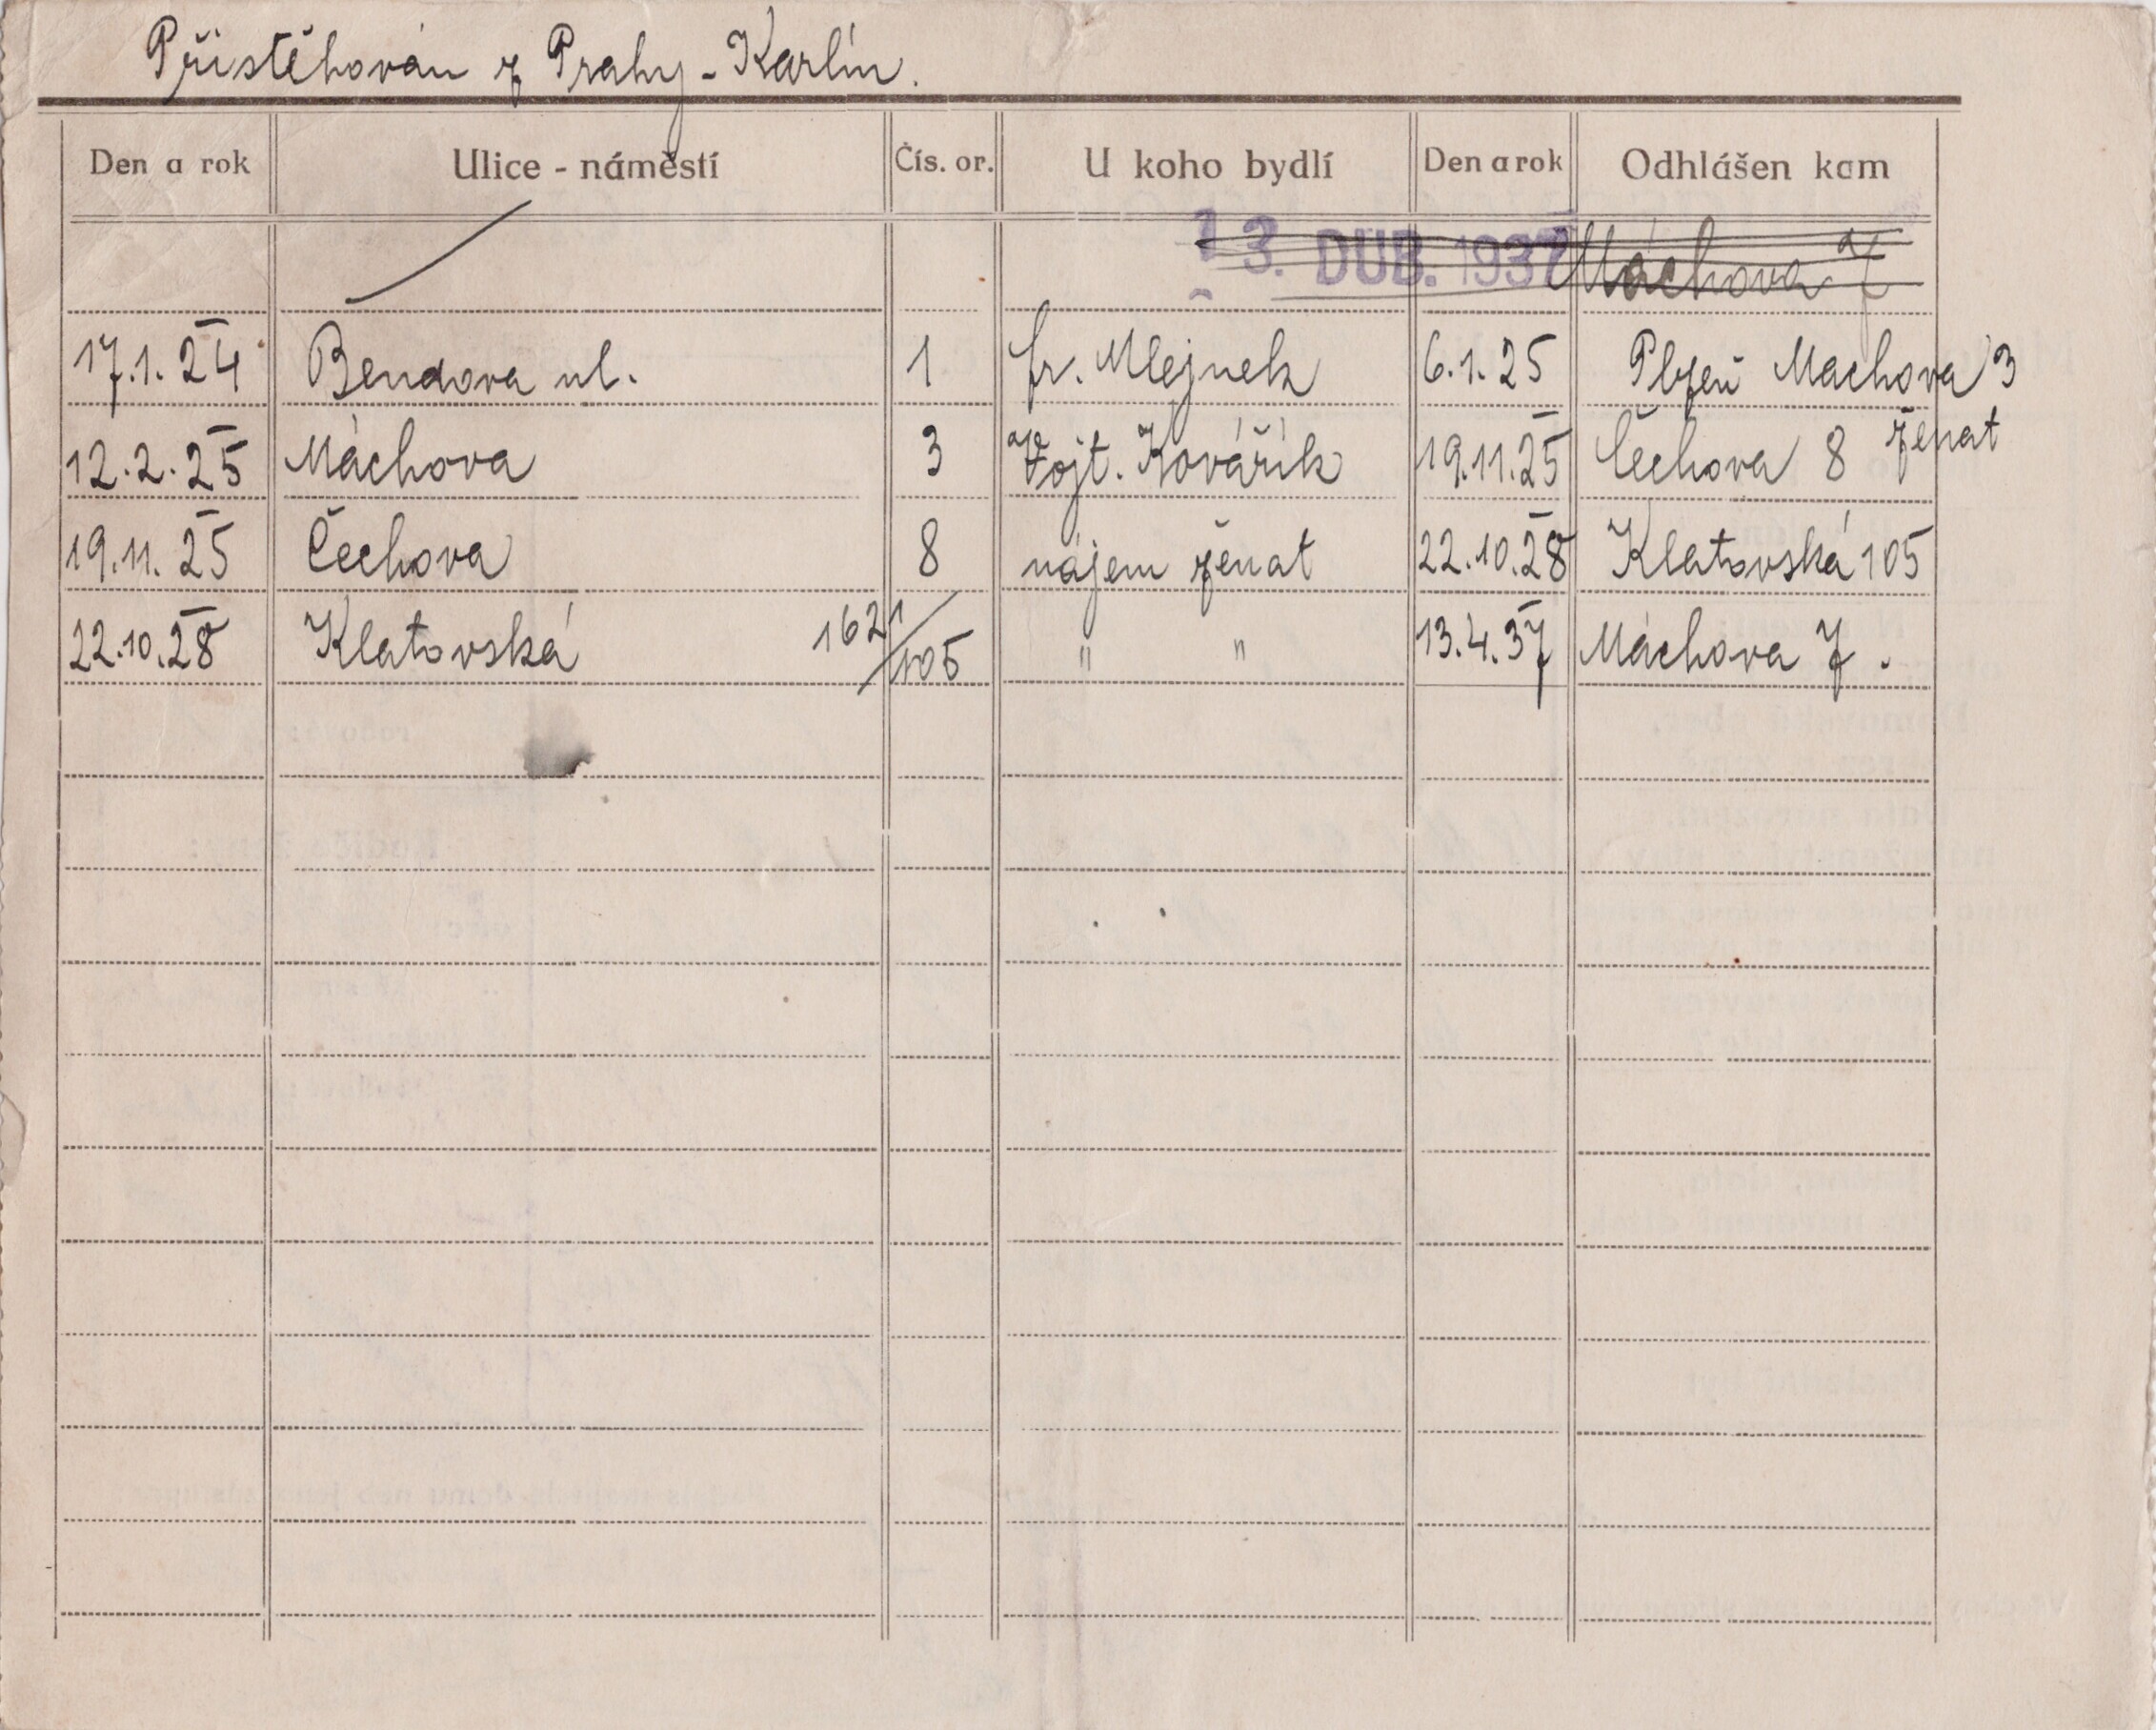 Přistěhován z Prahy - Karlín.
Den a rok Ulice - náměstí Čís. or. U koho bydlí Den a rok Odhlášen kam
13. DUB. 1937 Máchova 7
17.1.24 Bendova ul. 1 fr. Mlejnek 6.1.25 Plzeň Machova 3
12.2.25 Máchova 3 Vojt. Kovářík 19.11.25 Čechova 8 ženat
19.11.25 Čechova 8 nájem ženat 22.10.28 Klatovská 105
22.10.28 Klatovská 1621/105 " " 13.4.37 Máchova 7.